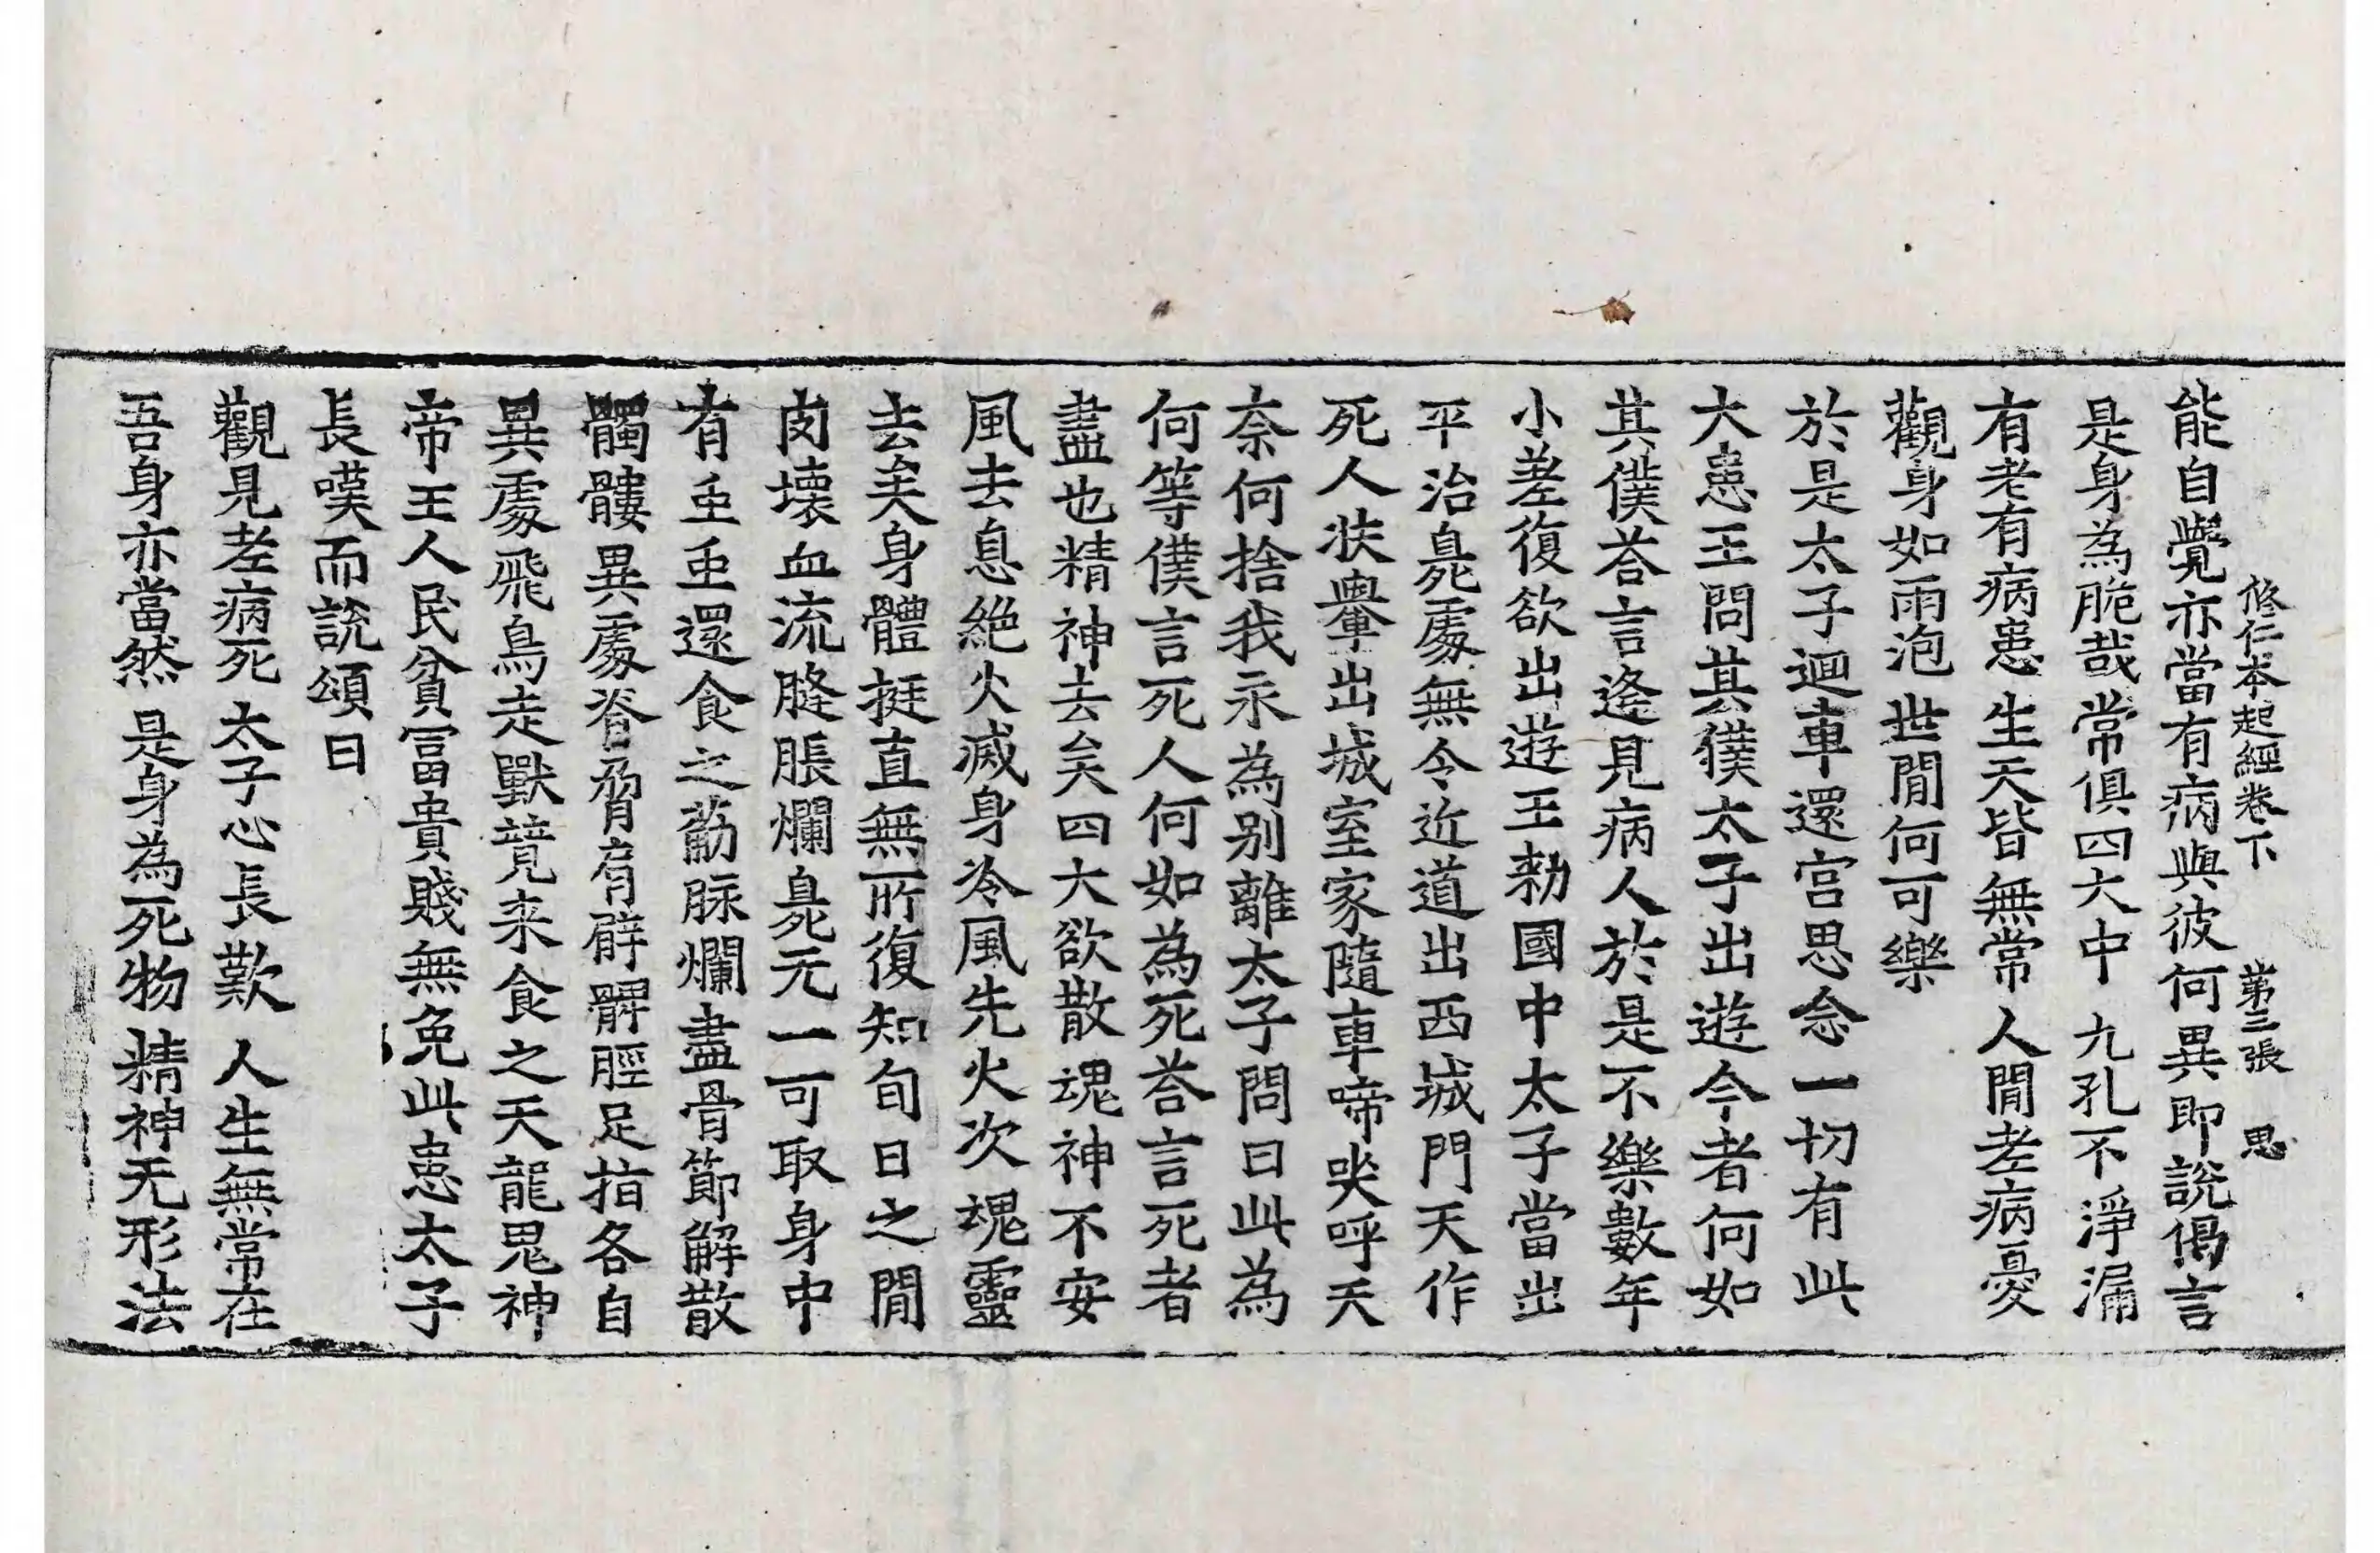 修仁本起經卷下 第三張 思
能自覺亦當有病與彼何異即說偈言
是身為脆哉 常俱四大中 九孔不淨漏
有老有病患 生天皆無常 人間老病憂
觀身如雨泡 世間何可樂
於是太子迴車還宮思念一切有此
大患王問其僕太子出遊今者何如
其僕荅言逢見病人於是不樂數年
小差復欲出遊王勑國中太子當出
平治臰處無令近道出西城門天作
死人扶轝出城室家隨車啼哭呼天
奈何捨我永為別離太子問曰此為
何等僕言死人何如為死荅言死者
盡也精神去矣四大欲散魂神不安
風去息絕火滅身冷風先火次魂靈
去矣身體挺直無所復知旬日之間
肉壞血流膖脹爛臰无一可取身中
有䖝䖝還食之筋脉爛盡骨節解散
髑髏異處脊脅肩臂髀脛足指各自
異處飛鳥走獸競来食之天龍鬼神
帝王人民貧富貴賤無免此患太子
長嘆而說頌曰
觀見老病死 太子心長歎 人生無常在
吾身亦當然 是身為死物 精神无形法